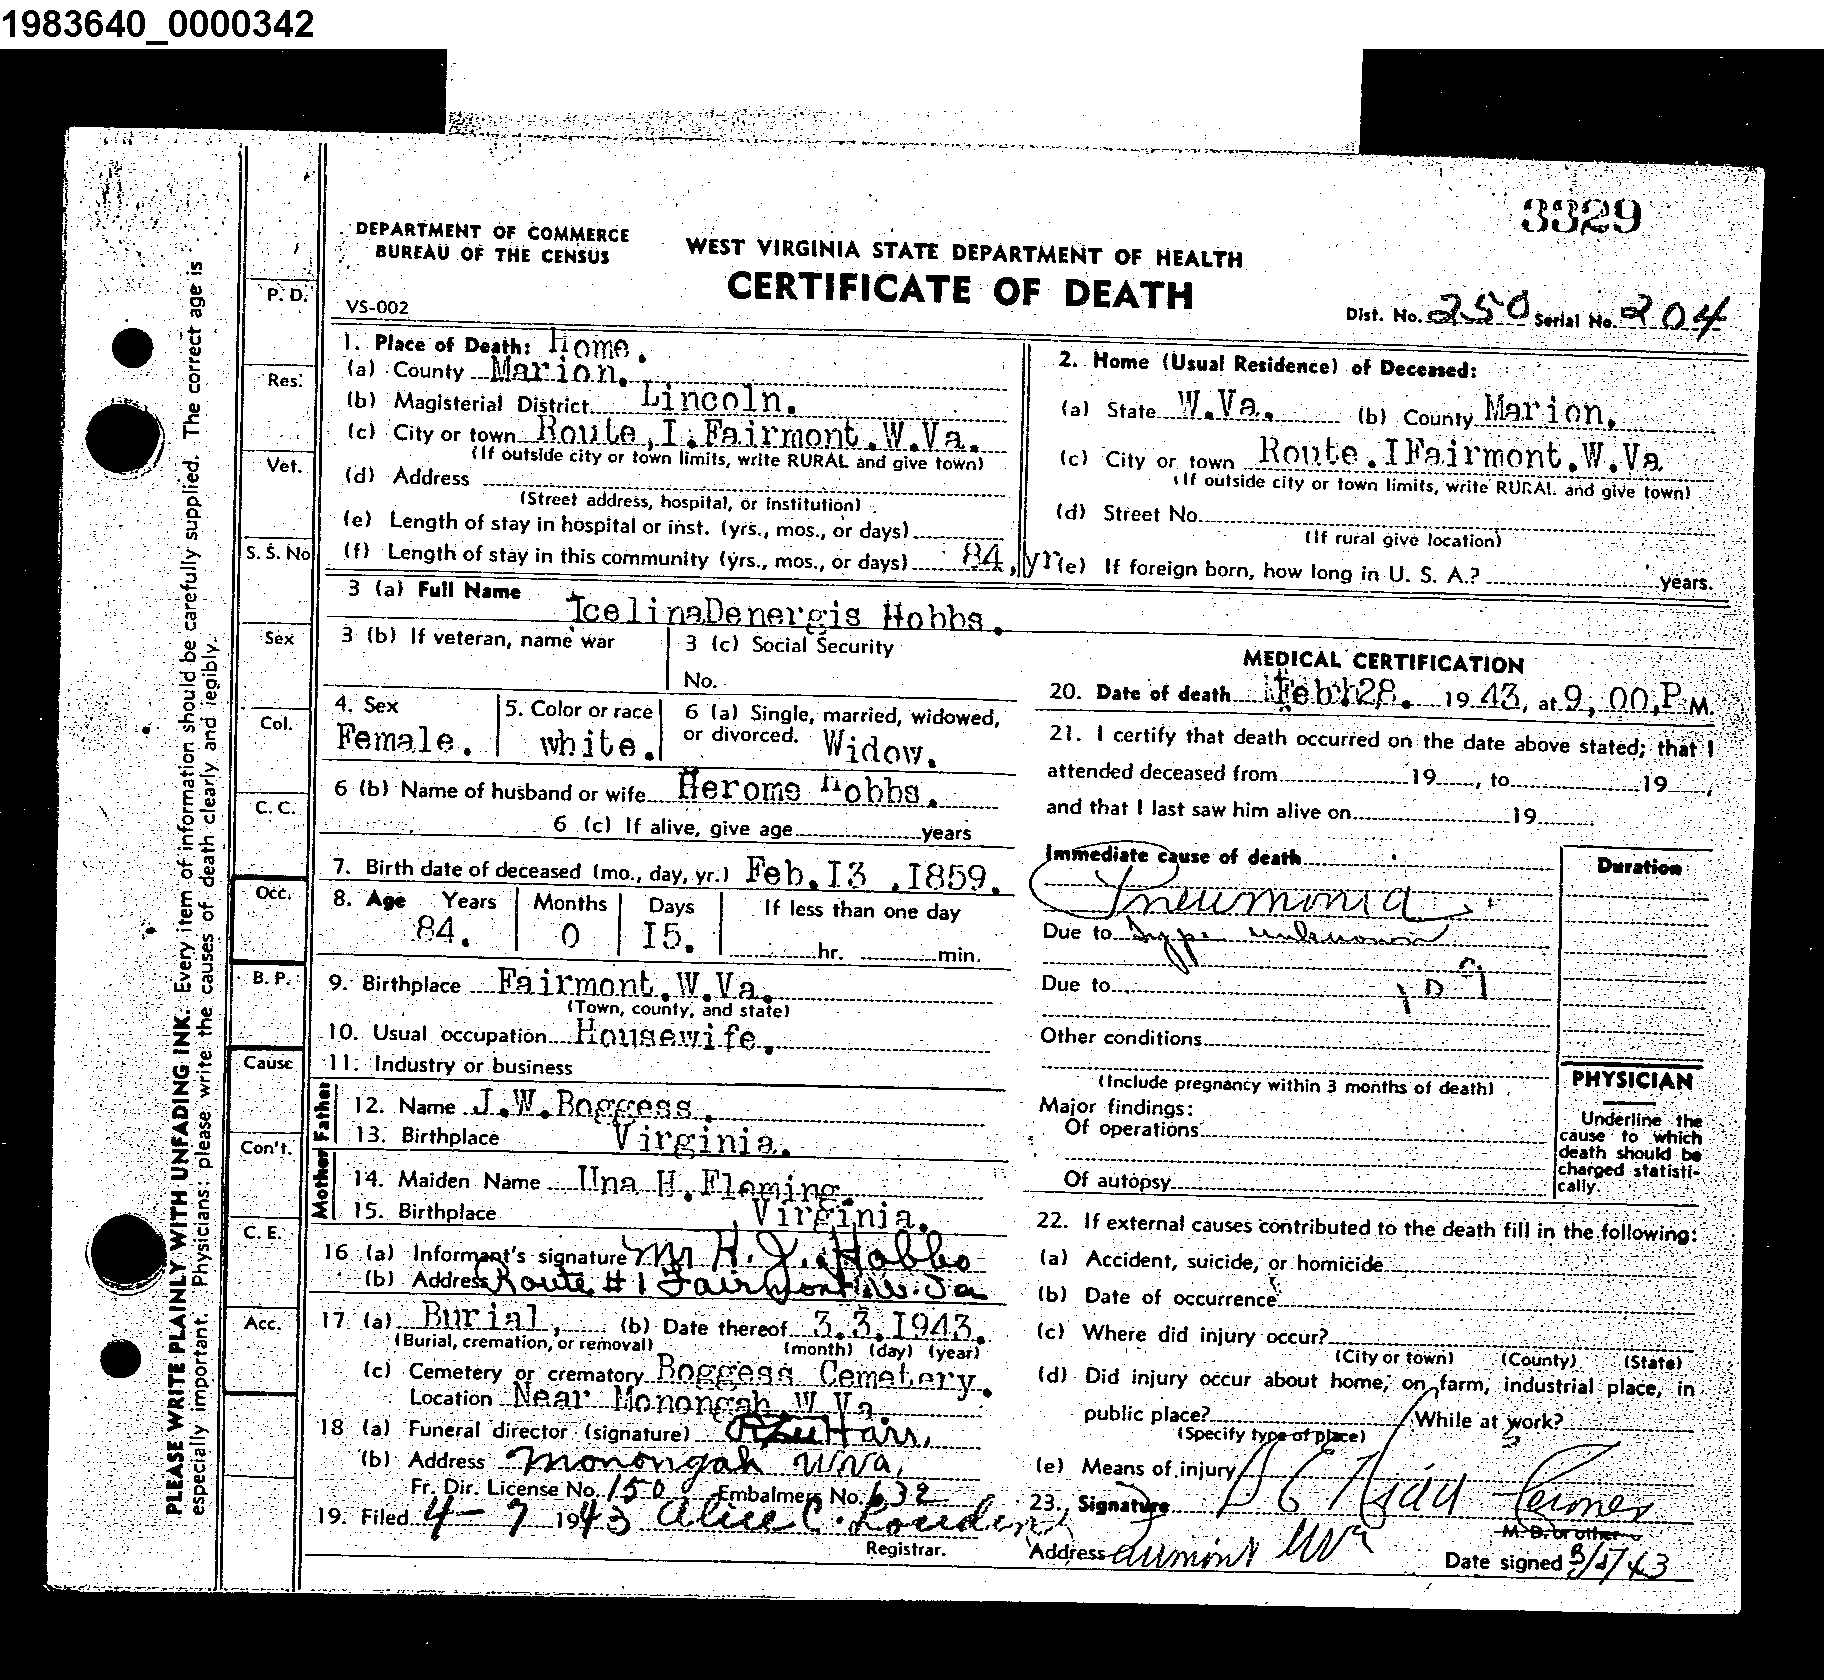 1983640_0000342
3329
DEPARTMENT OF COMMERCE
BUREAU OF THE CENSUS
WEST VIRGINIA STATE DEPARTMENT OF HEALTH
CERTIFICATE OF DEATH
VS-002
Dist. No. 250 Serial No. 204
PLEASE WRITE PLAINLY WITH UNFADING INK. Every item of information should be carefully supplied. The correct age is
especially important. Physicians: please write the causes of death clearly and legibly.
P. D.
Res.
Vet.
S. S. No
Sex
Col.
C. C.
Occ.
B. P.
Cause
Con't.
C. E.
Acc.
1. Place of Death: Home.
(a) County Marion.
(b) Magisterial District Lincoln.
(c) City or town Route, I. Fairmont. W. Va.
(If outside city or town limits, write RURAL and give town)
(d) Address
(Street address, hospital, or institution)
(e) Length of stay in hospital or inst. (yrs., mos., or days)
(f) Length of stay in this community (yrs., mos., or days) 84, yr
2. Home (Usual Residence) of Deceased:
(a) State W.Va. (b) County Marion.
(c) City or town Route. IFairmont. W. Va
(If outside city or town limits, write RURAL and give town)
(d) Street No.
(If rural give location)
(e) If foreign born, how long in U. S. A.? years.
3 (a) Full Name IcelinaDenergis Hobbs.
3 (b) If veteran, name war
3 (c) Social Security
No.
4. Sex
Female.
5. Color or race
white.
6 (a) Single, married, widowed,
or divorced. Widow.
6 (b) Name of husband or wife Herome Hobbs.
6 (c) If alive, give age years
7. Birth date of deceased (mo., day, yr.) Feb. I3 .I859.
8. Age Years Months Days If less than one day
84. 0 I5. hr. min.
9. Birthplace Fairmont. W. Va.
(Town, county, and state)
10. Usual occupation Housewife.
11. Industry or business
Father
12. Name J.W.Boggess.
13. Birthplace Virginia.
Mother
14. Maiden Name Una H. Fleming.
15. Birthplace Virginia.
16 (a) Informant's signature Mr H. J. Hobbs
(b) Address Route #1 Fairmont W. Va
17 (a) Burial, (b) Date thereof 3.3.I943.
(Burial, cremation, or removal) (month) (day) (year)
(c) Cemetery or crematory Boggess Cemetery.
Location Near Monongah W Va.
18 (a) Funeral director (signature)
(b) Address Monongah W Va,
Fr. Dir. License No. 150 Embalmers No. 632
19. Filed 4-7 1943 Alice C. Louden
Registrar.
MEDICAL CERTIFICATION
20. Date of death Feb. 28. 19 43, at 9, 00, P M.
21. I certify that death occurred on the date above stated; that I
attended deceased from 19 , to 19 ,
and that I last saw him alive on 19
Immediate cause of death
Duration
Pneumonia
Due to type unknown
Due to 109
Other conditions
(Include pregnancy within 3 months of death)
Major findings:
Of operations
Of autopsy
PHYSICIAN
Underline the
cause to which
death should be
charged statisti-
cally.
22. If external causes contributed to the death fill in the following:
(a) Accident, suicide, or homicide
(b) Date of occurrence
(c) Where did injury occur?
(City or town) (County) (State)
(d) Did injury occur about home, on farm, industrial place, in
public place? While at work?
(Specify type of place)
(e) Means of injury
23. Signature
M. D. or other
Address Fairmont W Va Date signed 3/5/43